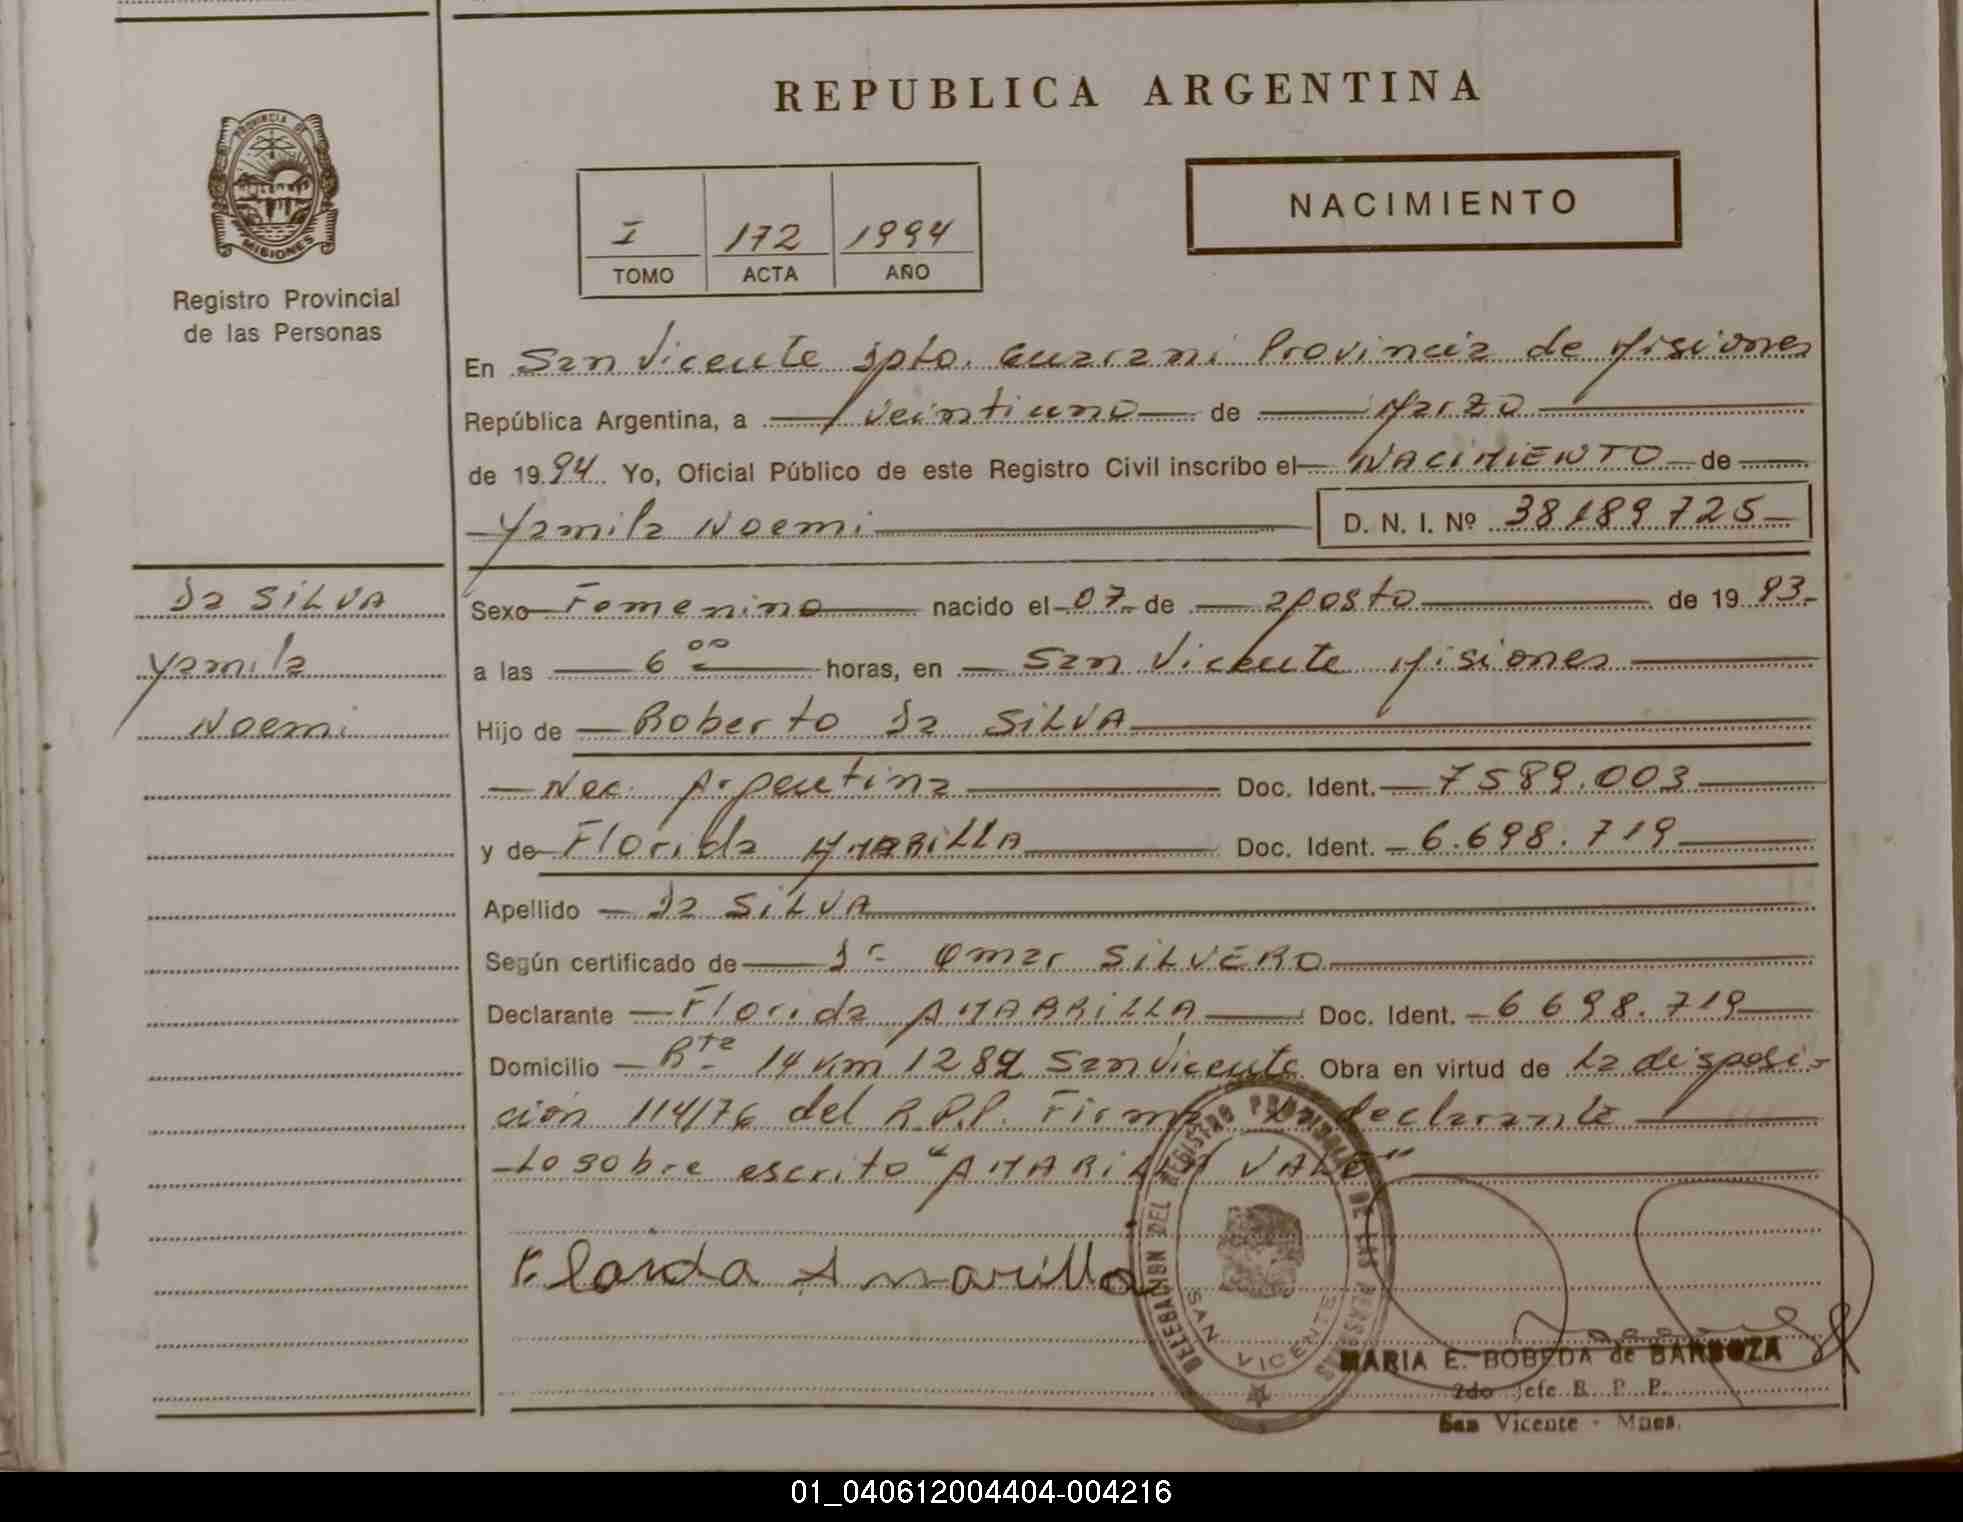 REPUBLICA ARGENTINA
PROVINCIA DE
MISIONES
Registro Provincial
de las Personas
I 172 1994
TOMO ACTA AÑO
NACIMIENTO
En San Vicente Dpto. Guarani Provincia de Misiones
República Argentina, a veintiuno de Marzo
de 1994. Yo, Oficial Público de este Registro Civil inscribo el NACIMIENTO de
Yamila Noemi D. N. I. Nº 38189725
Da SILVA
Yamila
Noemi
Sexo Femenino nacido el 07 de agosto de 1993.
a las 6 00 horas, en San Vicente Misiones
Hijo de Roberto Da SILVA
Nac. Argentina Doc. Ident. 7589.003
y de Florida AMARILLA Doc. Ident. 6.698.719
Apellido Da SILVA
Según certificado de Dr Omar SILVERO
Declarante Florida AMARRILLA Doc. Ident. 6698.719
Domicilio Rta 14 Km 1282 San Vicente Obra en virtud de La disposi-
ción 114/76 del R.P.P. Firma La declarante
Lo sobre escrito "AMARILLA VALE"
Florida Amarilla
DELEGACION DEL REGISTRO PROVINCIAL DE LAS PERSONAS
SAN VICENTE
MARIA E. BOBEDA de BARBOZA
2do Jefe R. P. P.
San Vicente - Mnes.
01_040612004404-004216